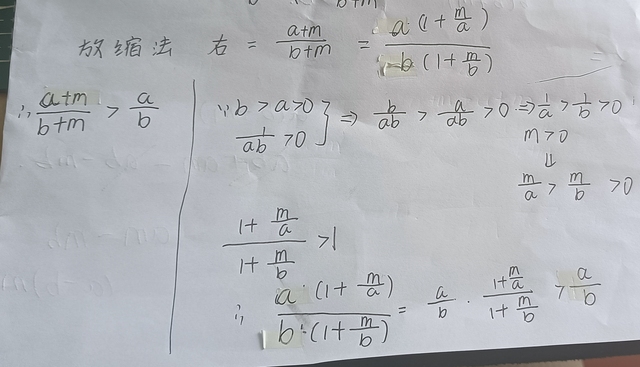 b+m
放缩法 右 = \frac{a+m}{b+m} = \frac{a·(1+\frac{m}{a})}{b·(1+\frac{m}{b})}
∴ \frac{a+m}{b+m} > \frac{a}{b}
∵ b > a > 0 } ⇒ \frac{b}{ab} > \frac{a}{ab} > 0 ⇒ \frac{1}{a} > \frac{1}{b} > 0
\frac{1}{ab} > 0
m > 0
⇓
\frac{m}{a} > \frac{m}{b} > 0
\frac{1+\frac{m}{a}}{1+\frac{m}{b}} > 1
∴ \frac{a·(1+\frac{m}{a})}{b·(1+\frac{m}{b})} = \frac{a}{b} · \frac{1+\frac{m}{a}}{1+\frac{m}{b}} > \frac{a}{b}